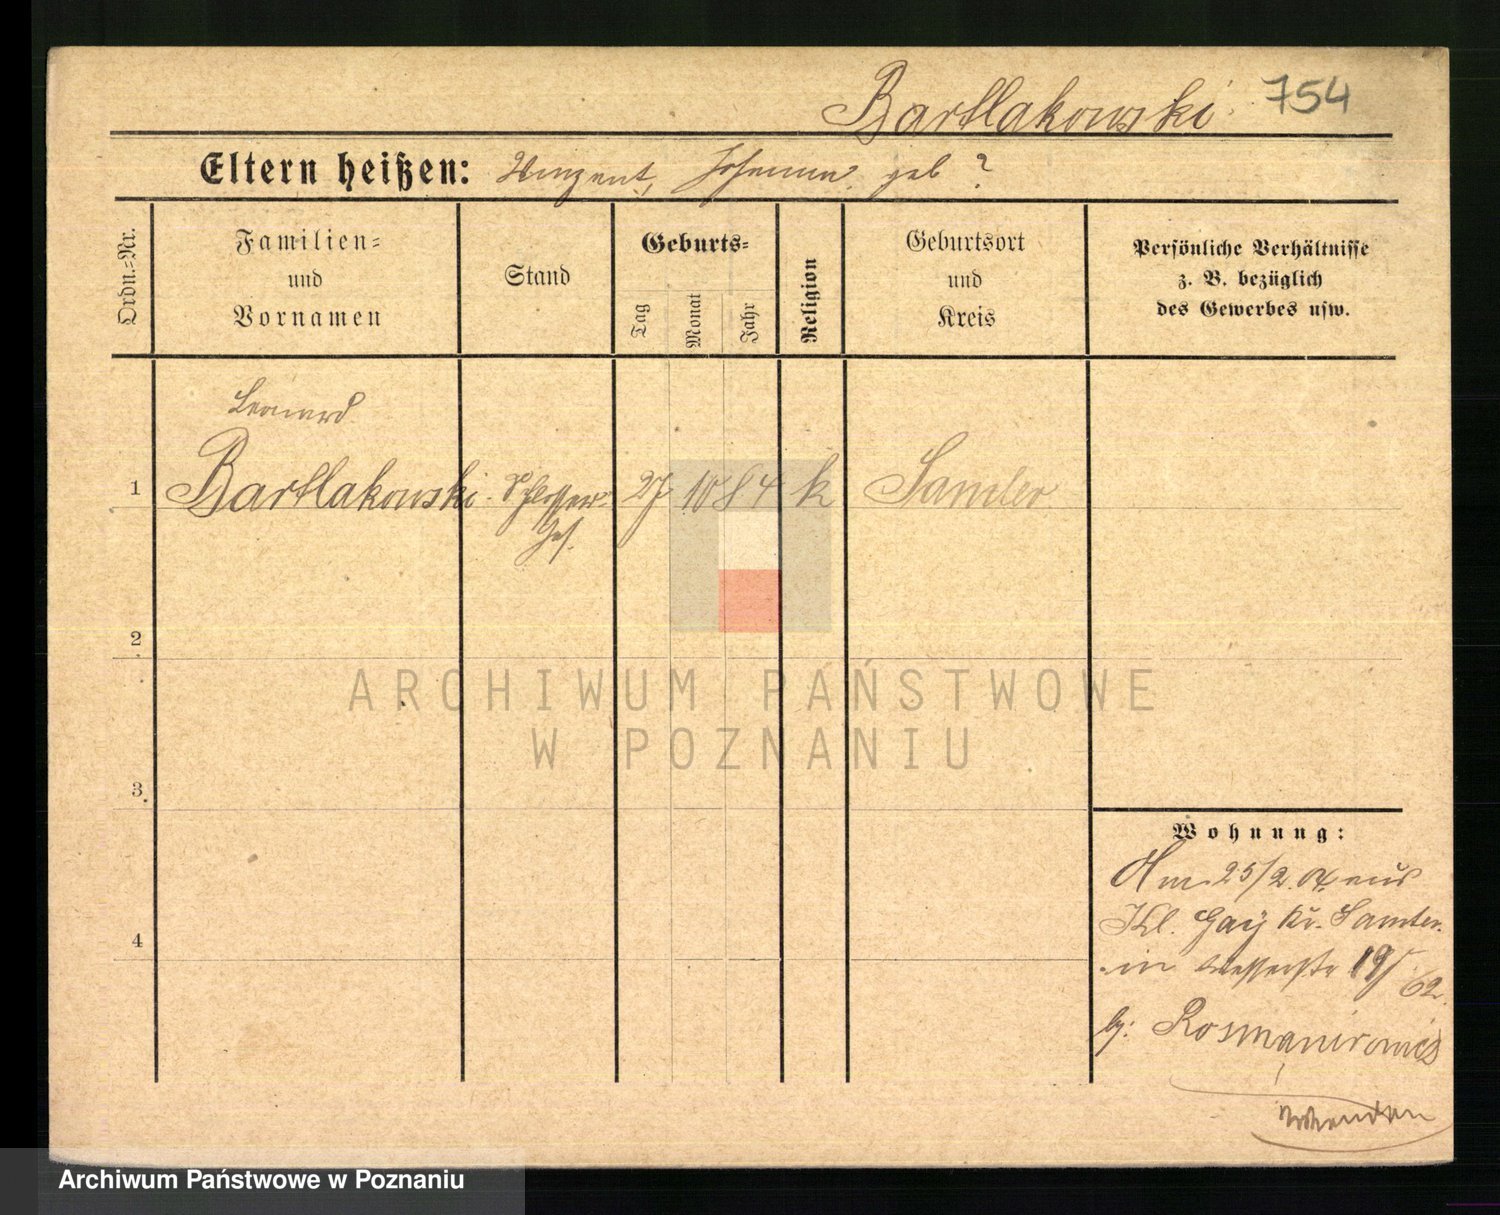 Bartlakowski 754
Eltern heißen: Vinzent, Johanna geb ?
Ordn.-Nr.
Familien-
und
Vornamen
Stand
Geburts-
Tag
Monat
Jahr
Religion
Geburtsort
und
Kreis
Persönliche Verhältnisse
z. B. bezüglich
des Gewerbes usw.
Leonard
1 Bartlakowski Schlosser 27 10 84 k Samter
Ges.
2
ARCHIWUM PAŃSTWOWE
W POZNANIU
3
Wohnung:
Am 25/2.04 aus
Kl. Gay Kr. Samter
4
in Wasserstr 19/
62.
by: Rosmanirowicz
Wenden
Archiwum Państwowe w Poznaniu